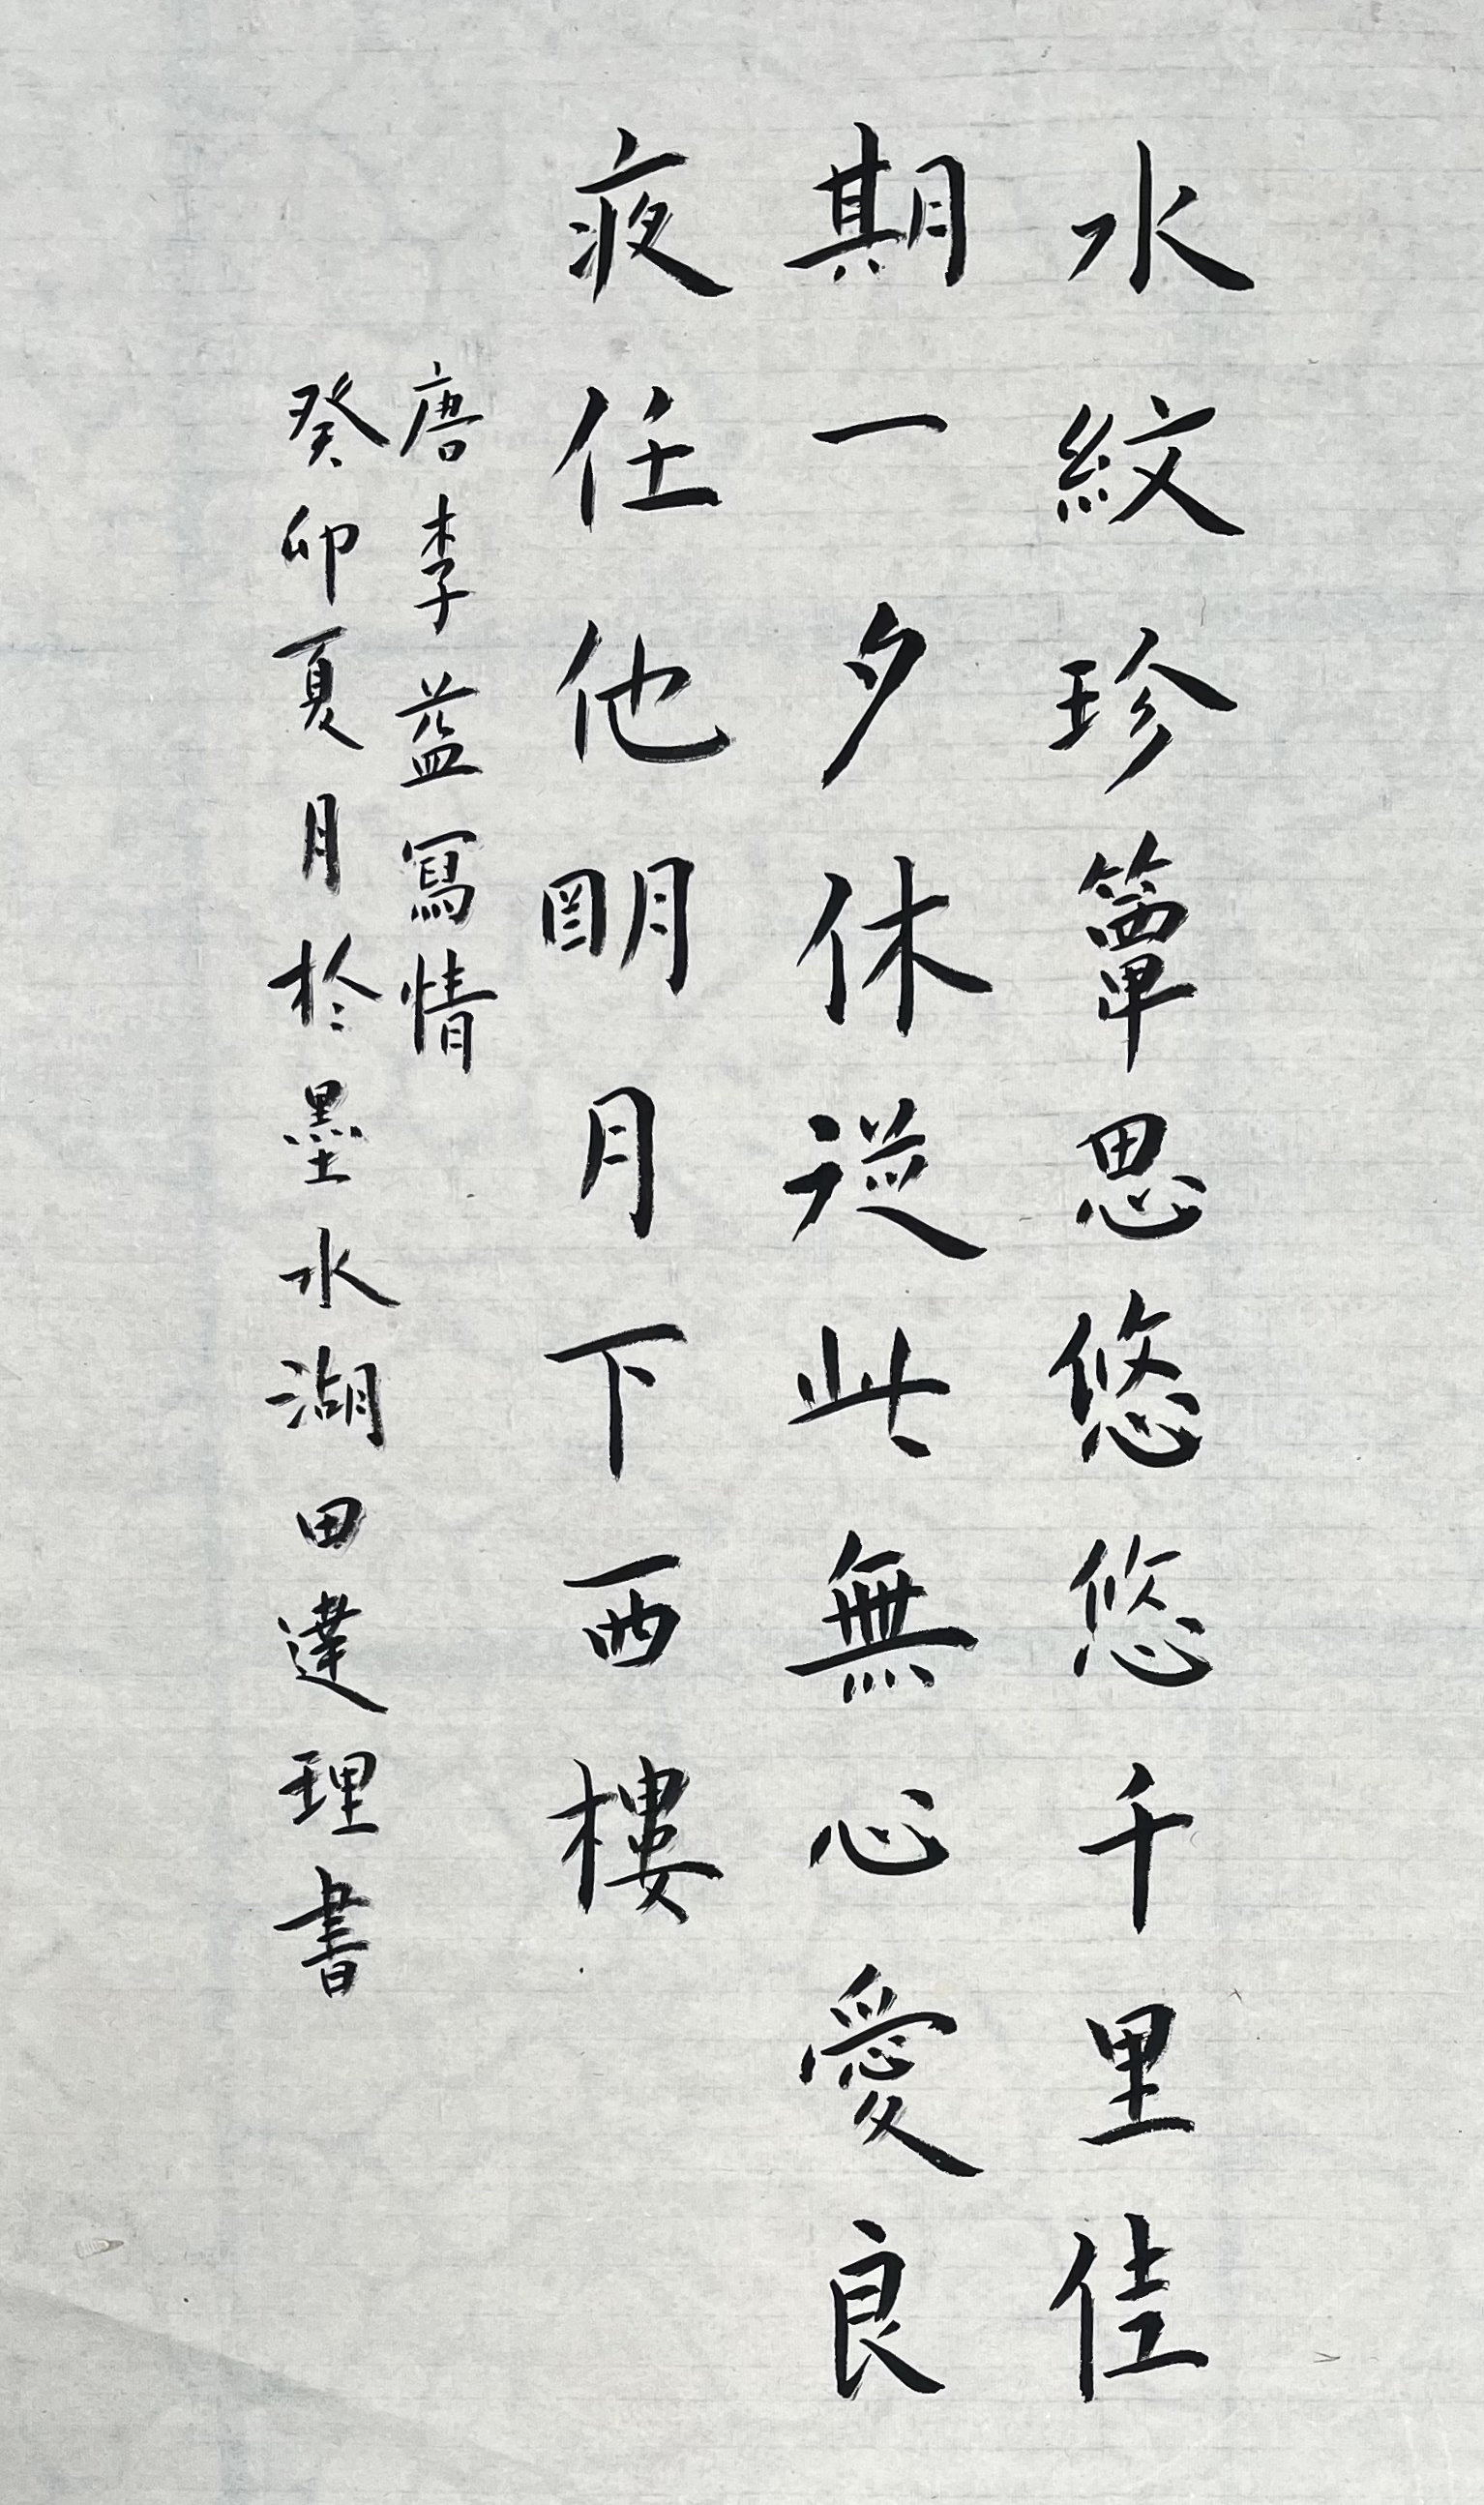 水紋珍簟思悠悠千里佳
期一夕休從此無心愛良
夜任他明月下西樓
唐李益寫情
癸卯夏月於墨水湖田達理書